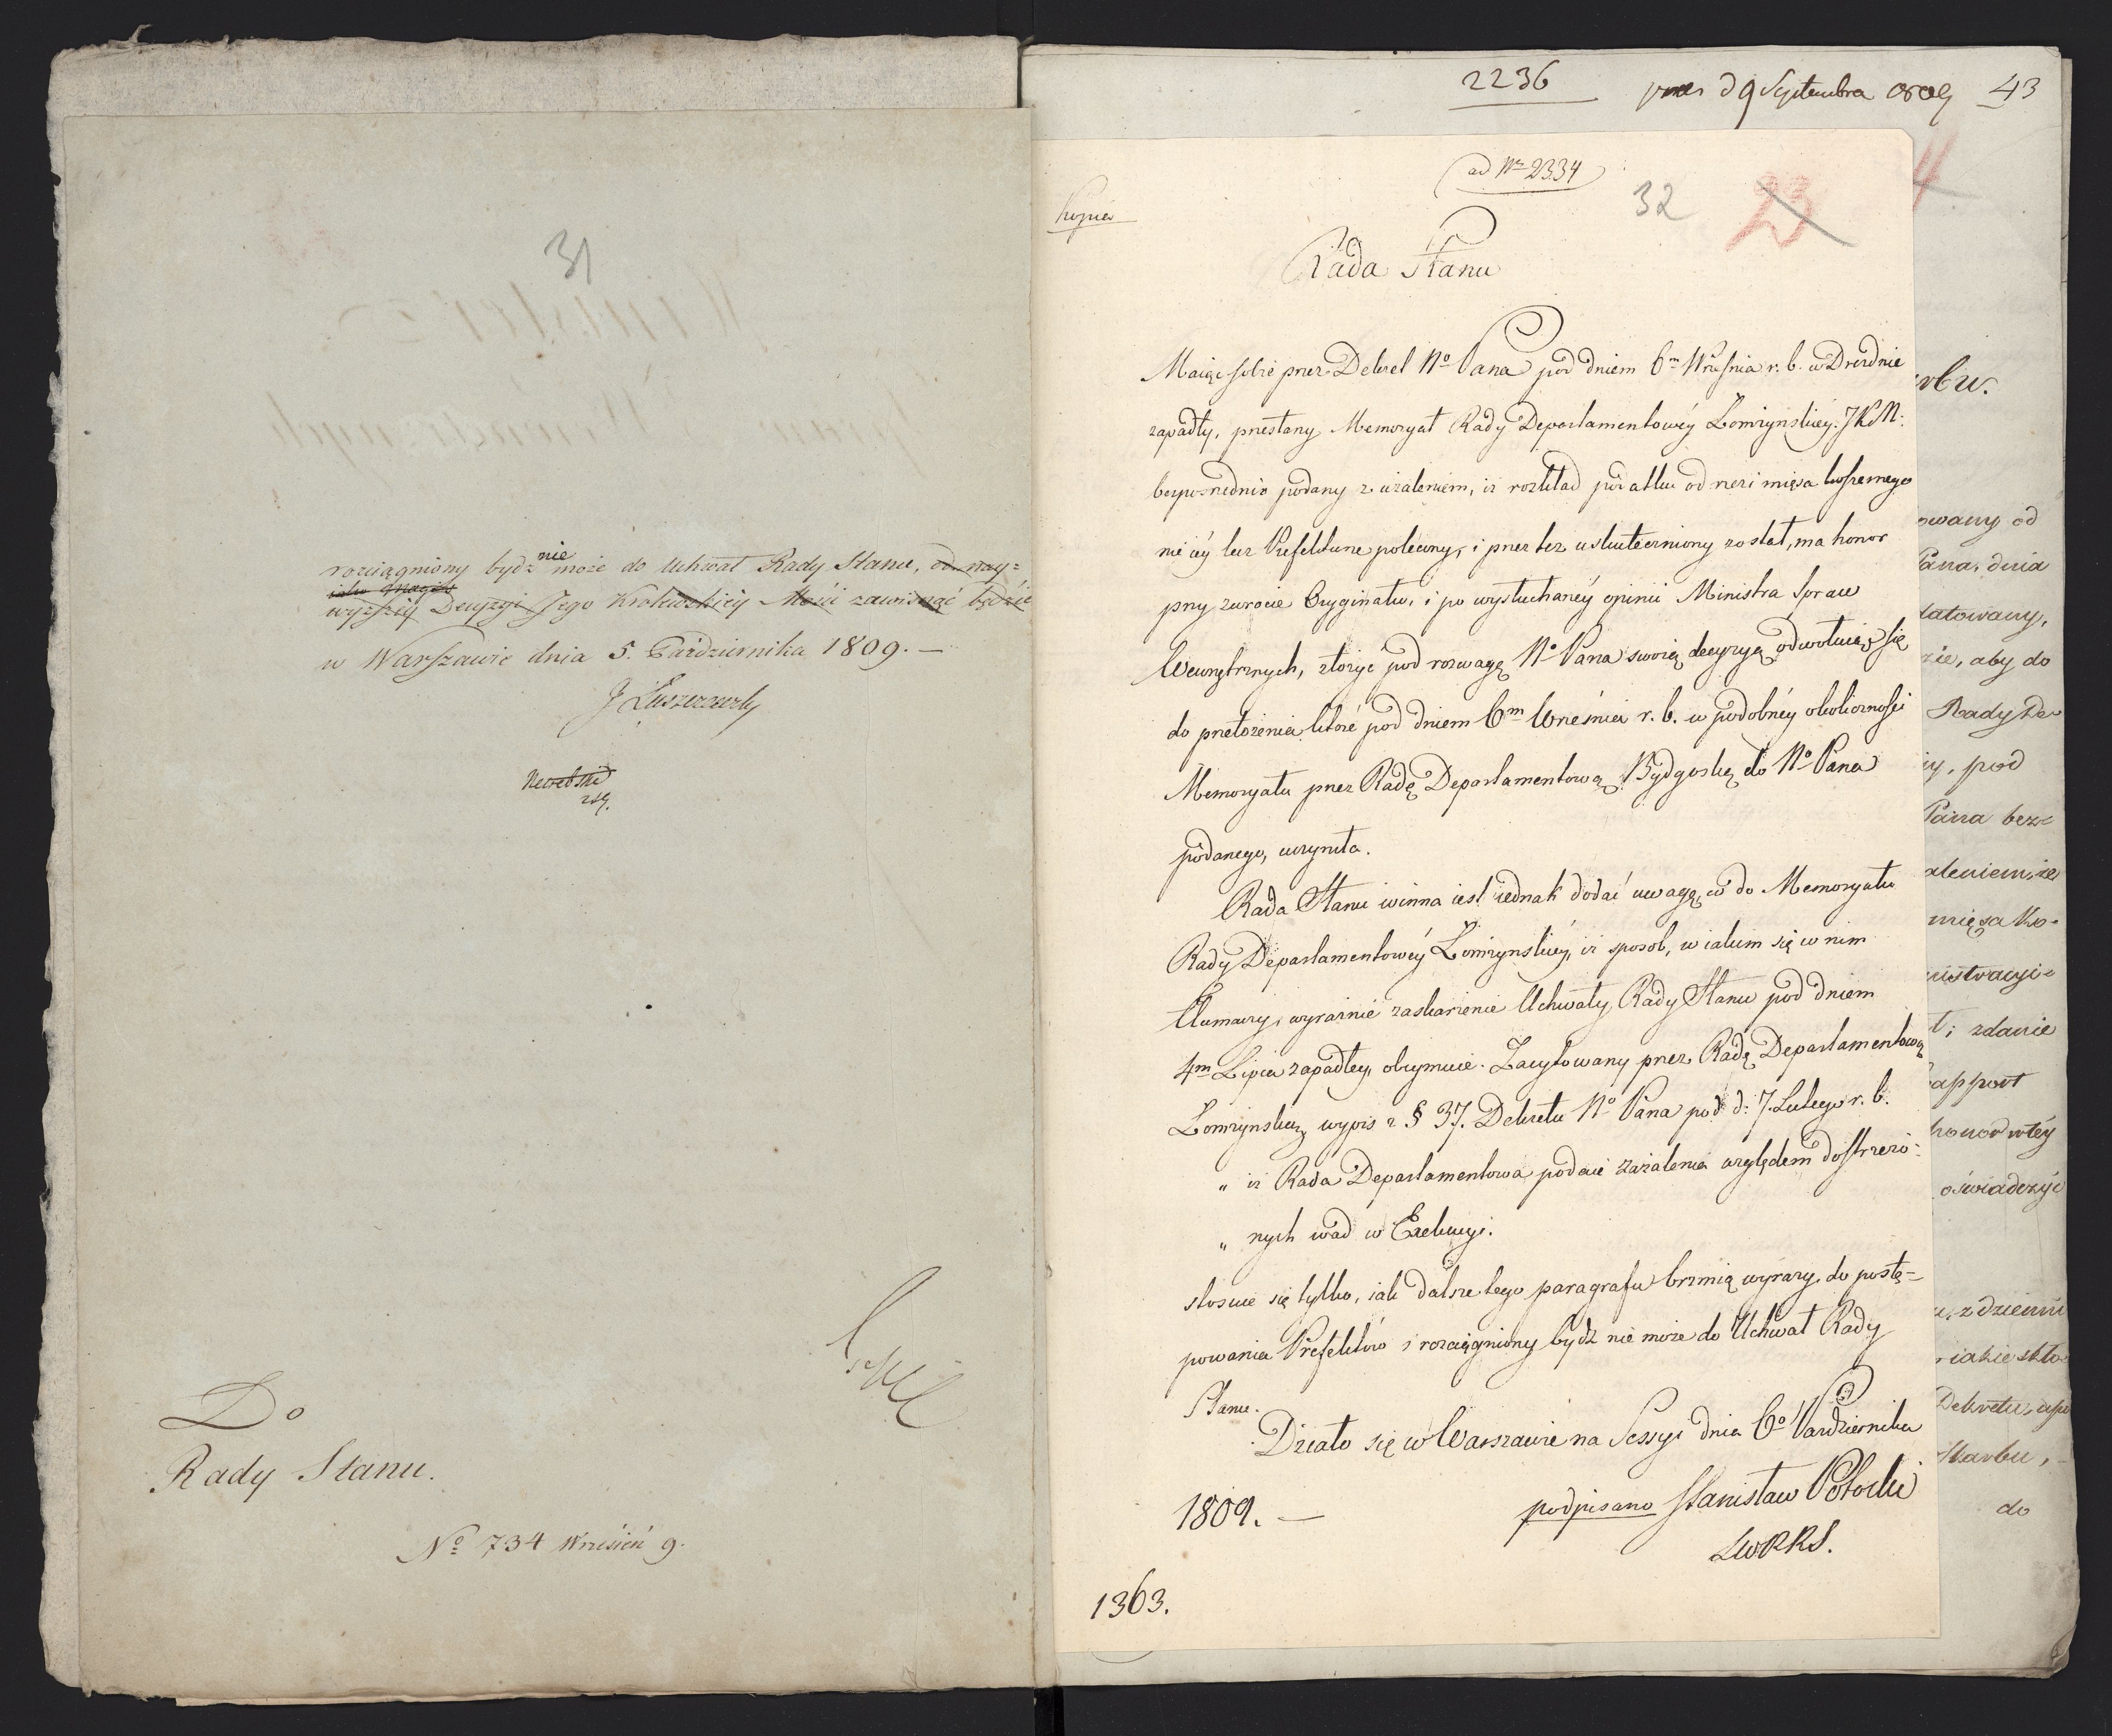 31
rozciągniony bydź nie może do Uchwał Rady Stanu, od nay=
wyższéy Decyzyi Jego Królewskiéy Mości zawisnąć będzie
w Warszawie dnia 5. Października 1809. —
J Łuszczewsky
Do
Rady Stanu.
No 734 Wrzesień 9.
2236
9 Septembra 1809
43
ad Nr 2334
Kopia
32
23
4
Rada Stanu
Maiąc sobie przez Dekret No Pana pod dniem 6m Wrzesnia r. b. w Dreznie
zapadły, przesłany Memoryał Rady Departamentowéy Łomżynskiey J K M:
bezpośrednio podany z użaleniem, iż rozkład podatku od rzezi mięsa koszernego
nie iéy lecz Prefekturze polecony, i przez też uskuteczniony został, ma honor
przy zwrocie Oryginału, i po wysłuchanéy opinii Ministra Spraw
Wewnętrznych, złożyć pod rozwagę No Pana swoią decyzyą odwołuiąc się
do przełożenia które pod dniem 6m Wrześnią r. b. w podobnéy okoliczności
Memoryału przez Radę Departamentową Bydgoską do No Pana
podanego, uczyniła.
Rada Stanu winna iest iednak dodać uwagę, co do Memoryału
Rady Departamentowéy Łomżynskiéy, iż sposob, w iakim się w nim
tłumaczy, wyraźnie zaskarżenie Uchwały Rady Stanu pod dniem
4m Lipca zapadłey, obeymuie. Zacytowany przez Radę Departamentową
Łomżynską, wypis z § 37. Dekretu No Pana pod d: 7. Lutego r. b.
„ iż Rada Departamentowa podaie zażalenia względem dostrzeżo-
„ nych wad w Exekucyi.
stosuie się tylko, iak dalsze tego paragrafu brzmią wyrazy, do postę-
powania Prefektów i rozciągniony bydź nie może do Uchwał Rady
Stanu.
Działo się w Warszawie na Sessyi dnia 6o Października
1809. —
podpisano Stanisław Potocki
ZwRRS.
1363.
rbu.
owany od
Pana, dnia
datowany,
zie, aby do
Rady De-
iy, pod
Pana bez-
aleniem, że
mięsa Ko-
nistracyi-
t; zdanie
Rapport
honor w téy
oświadczyć
u, z dzienni
iakie skła-
Dekretu, aże
Skarbu,
do